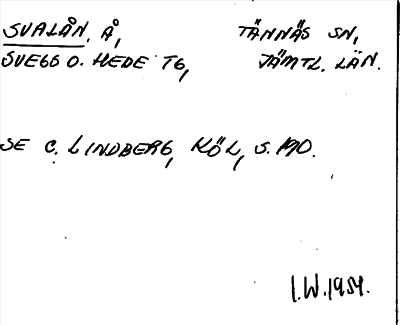 SVALÅN, Å, TÄNNÄS SN,
SVEGS O. HEDE TG, JÄMTL. LÄN.
SE C. LINDBERG, KÖL, S. 190.
I.W. 1954.